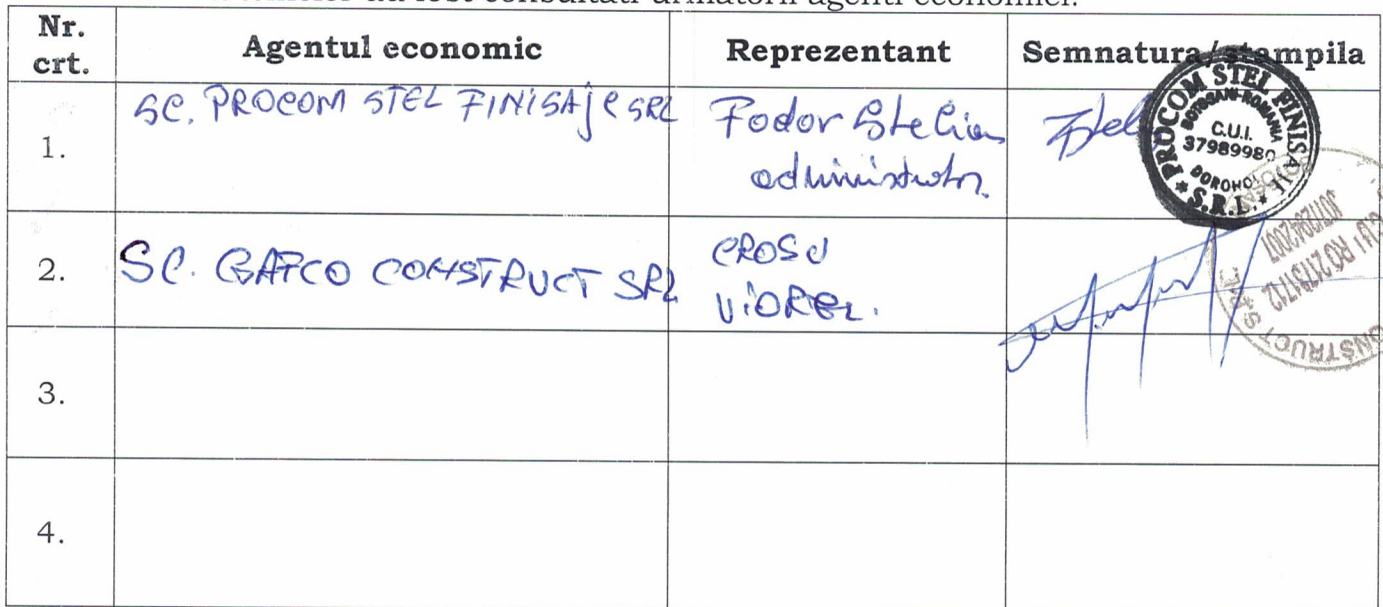 au fost consultati urmatorii agenti economici.
Nr. crt. Agentul economic Reprezentant Semnatura/stampila
1. SC. PROCOM STEL FINISAJE SRL Fodor Stelian
administrator.
PROCOM STEL FINISAJE
S.R.L.
BOTOSANI-ROMANIA
C.U.I.
37989980
DOROHOI
2. SC. GAFCO CONSTRUCT SRL CROSU
VIOREL.
CONSTRUCT SRL
3.
4.